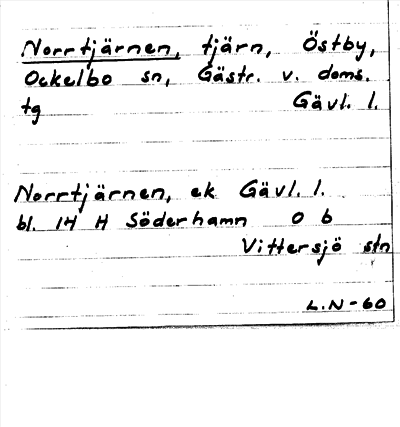 Norrtjärnen, tjärn, Östby,
Ockelbo sn, Gästr. v. doms.
tg Gävl. l.
Norrtjärnen, ek Gävl. l.
bl. 14 H Söderhamn 0 b
Vittersjö stn
L.N-60